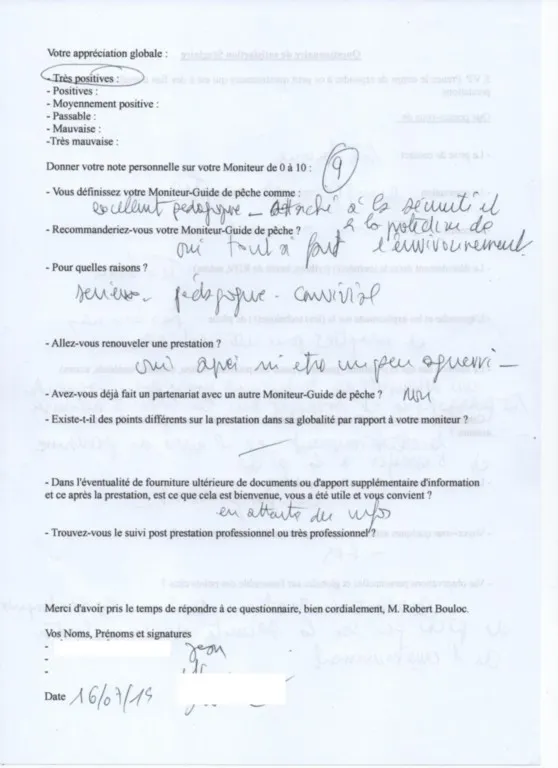 Votre appréciation globale :
- Très positives :
- Positives :
- Moyennement positive :
- Passable :
- Mauvaise :
-Très mauvaise :
Donner votre note personnelle sur votre Moniteur de 0 à 10 : 9
- Vous définissez votre Moniteur-Guide de pêche comme :
excellent pédagogue - attaché à la sécurité et
à la protection de
l'environnement
- Recommanderiez-vous votre Moniteur-Guide de pêche ?
oui tout à fait
- Pour quelles raisons ?
sérieux - pédagogue - convivial
- Allez-vous renouveler une prestation ?
oui après m'être un peu aguerri -
- Avez-vous déjà fait un partenariat avec un autre Moniteur-Guide de pêche ? Non
- Existe-t-il des points différents sur la prestation dans sa globalité par rapport à votre moniteur ?
- Dans l'éventualité de fourniture ultérieure de documents ou d'apport supplémentaire d'information
et ce après la prestation, est ce que cela est bienvenue, vous a été utile et vous convient ?
en attente des infos
- Trouvez-vous le suivi post prestation professionnel ou très professionnel ?
Merci d'avoir pris le temps de répondre à ce questionnaire, bien cordialement, M. Robert Bouloc.
Vos Noms, Prénoms et signatures
- Jean
-
-
Date 16/07/15